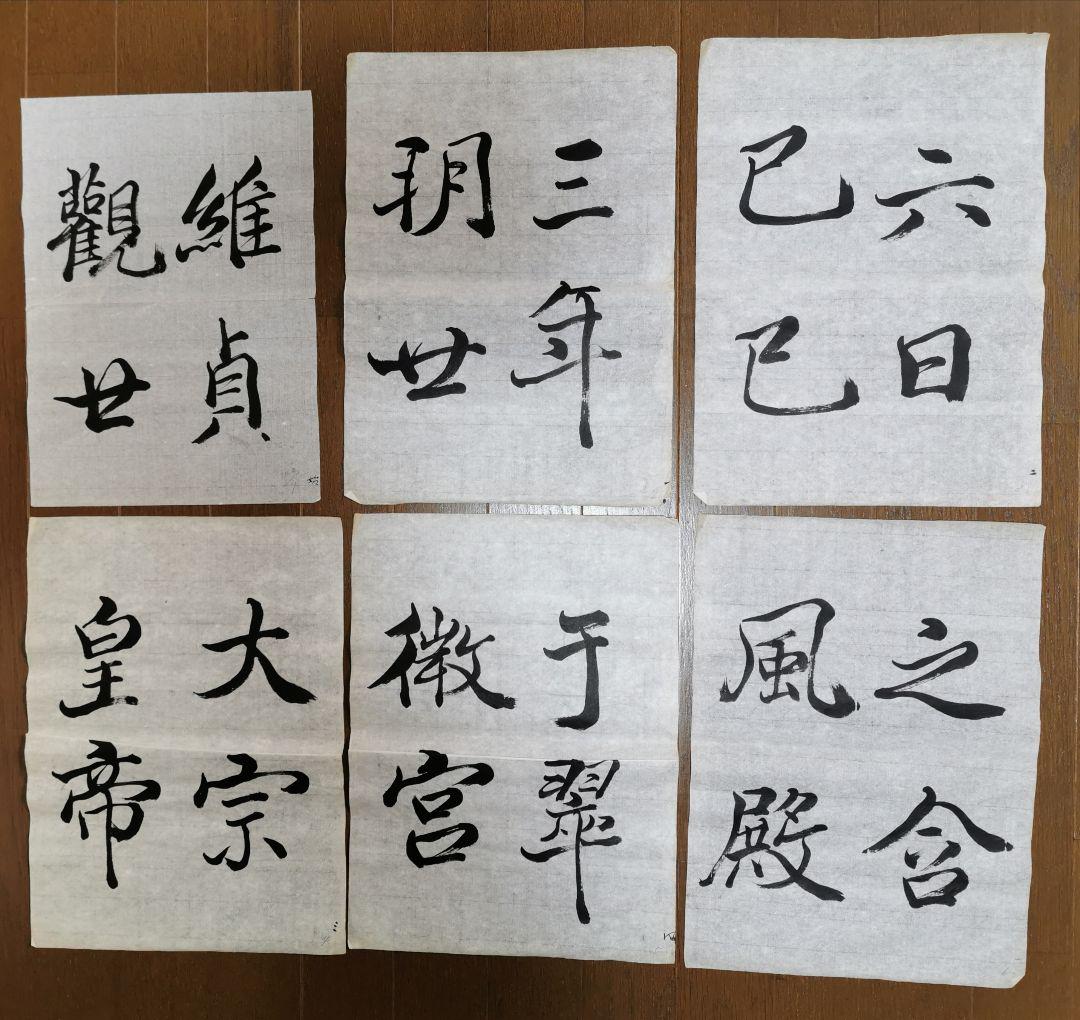 維貞
觀廿
三年
玥廿
六日
巳已
大宗
皇帝
于翠
微宮
之含
風殿